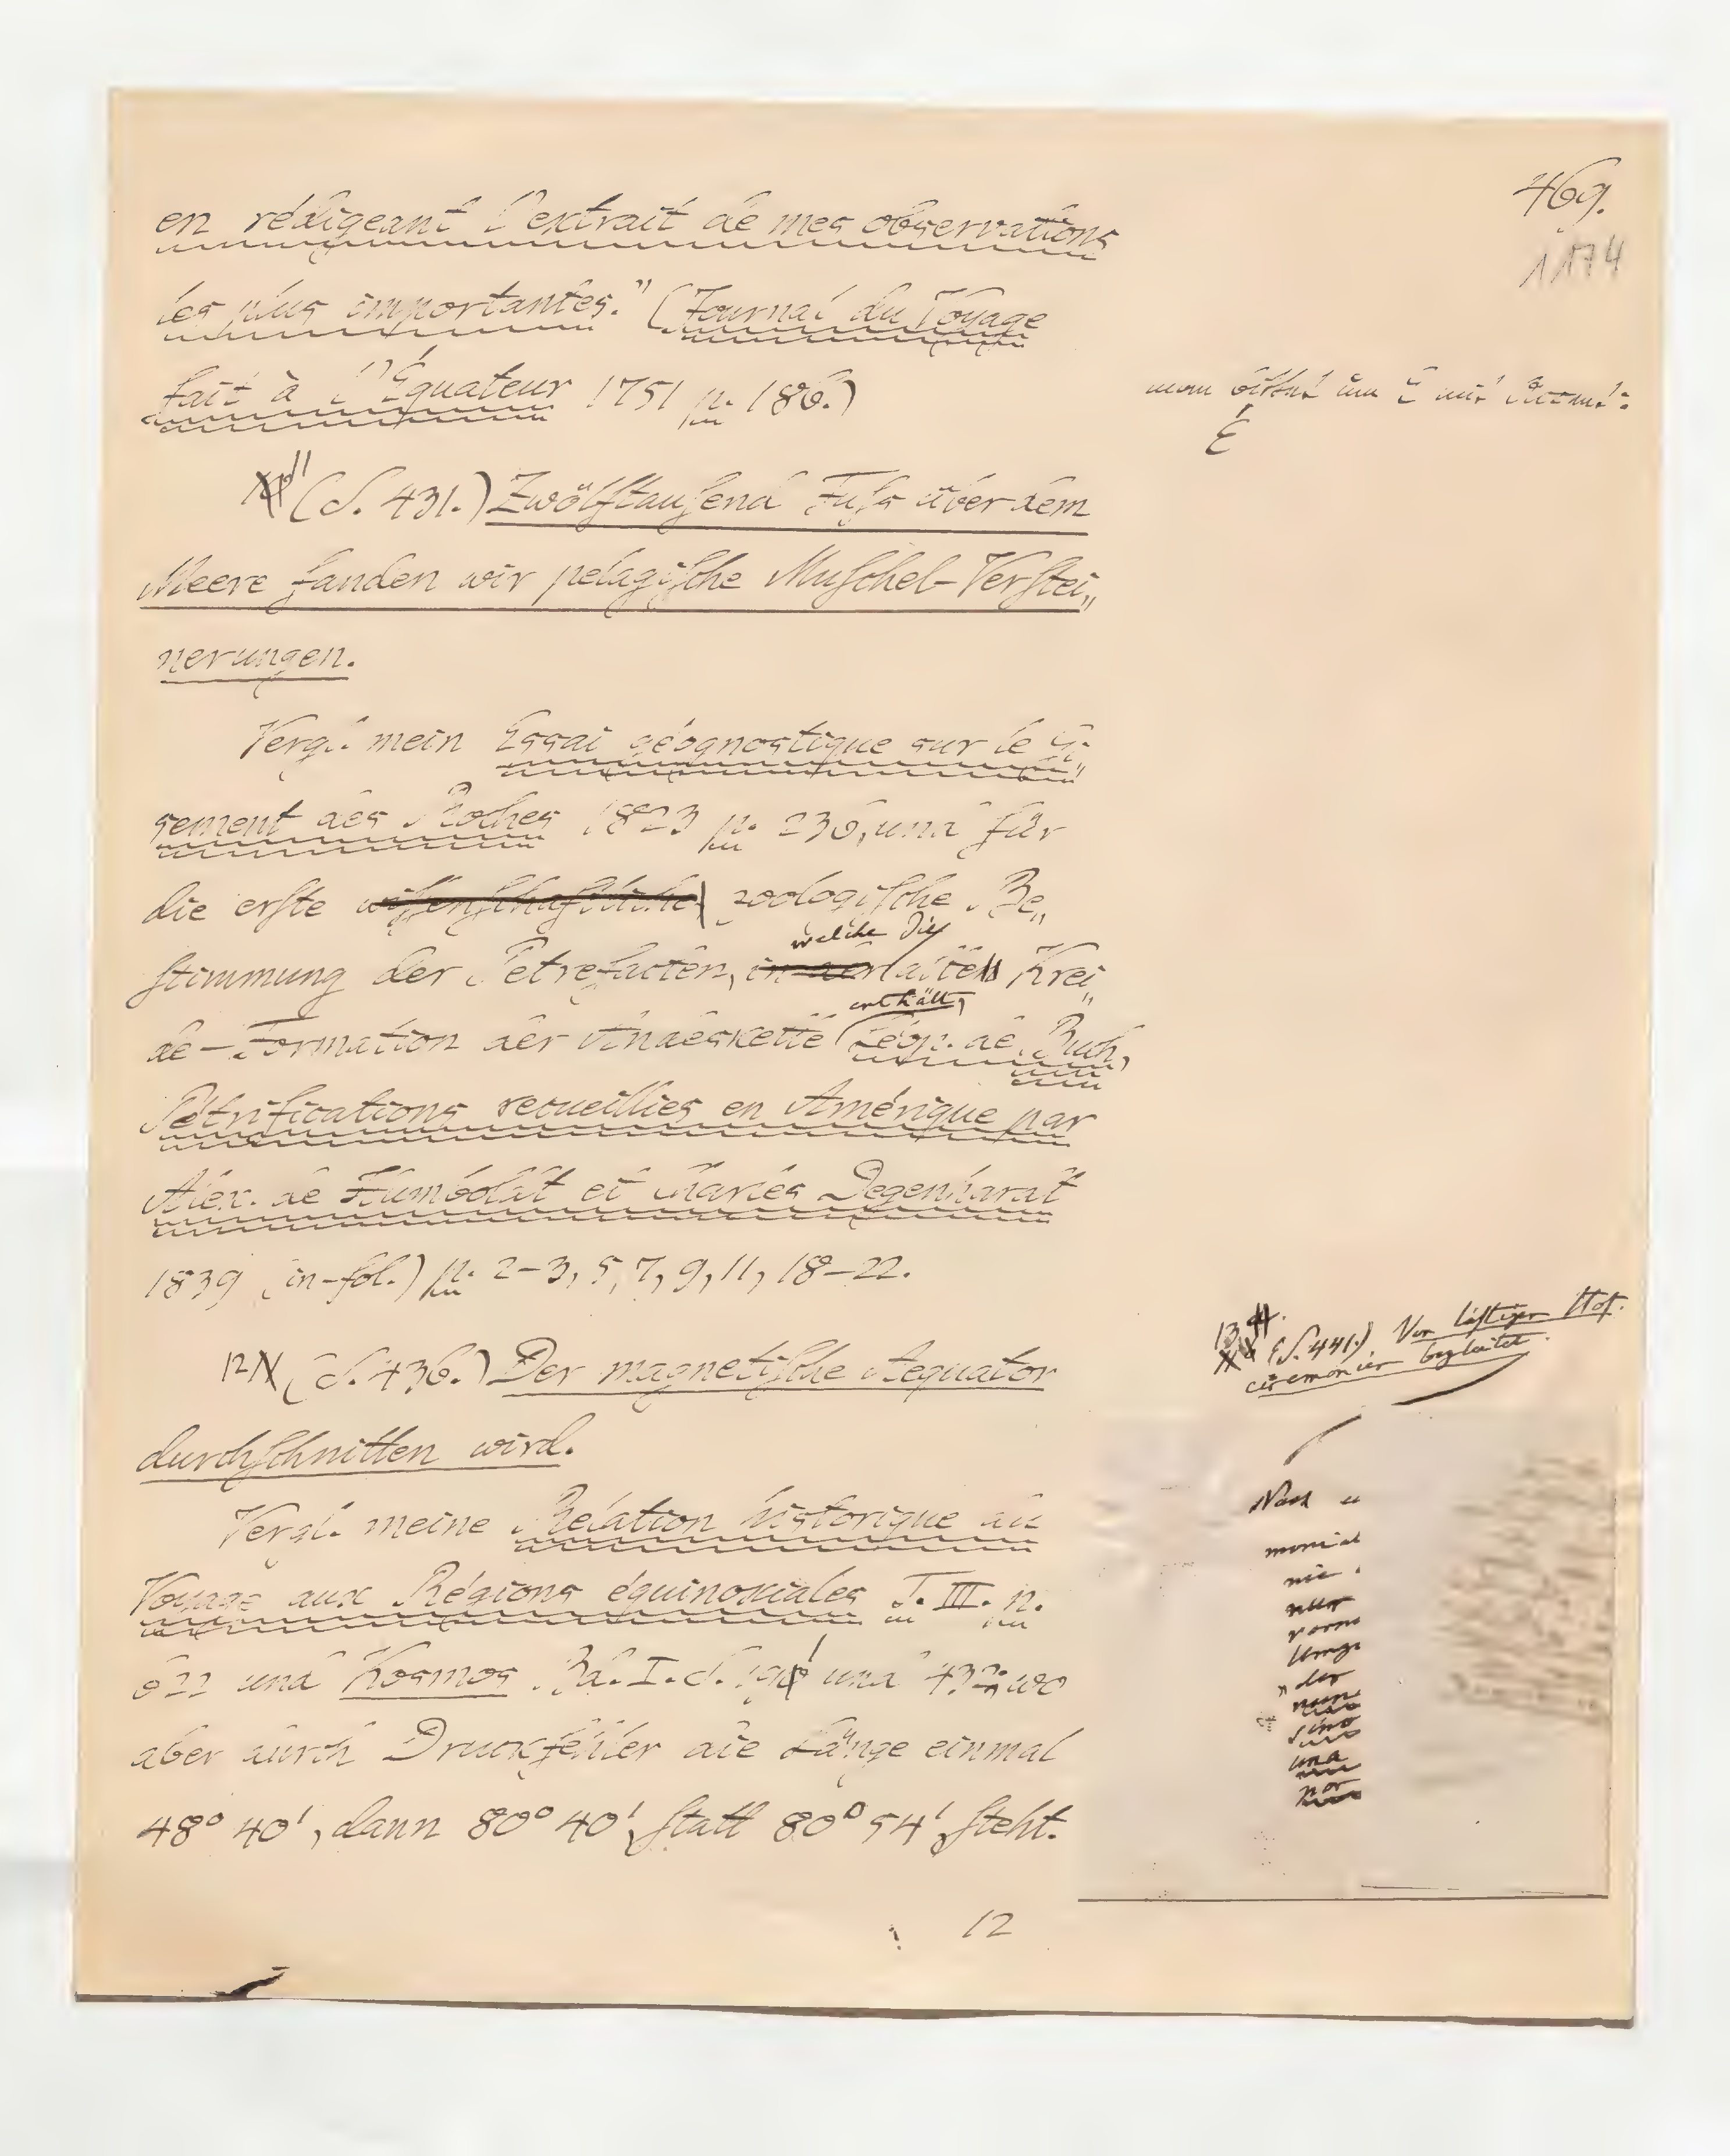 469.
1174
en rédigeant l'extrait de mes observations
les plus importantes." (Journal du Voyage
fait à l'Équateur 1751 p. 186.)
man bittet um E mit Accent:
É
11 (S. 431.) Zwölftauſend Fuſs über dem
Meere fanden wir pelagiſche Muſchel-Verſtei„
nerungen.
Vergl. mein Essai géognostique sur le Gi„
sement des Roches 1823 p. 236, und für
die erſte wiſſenſchaftliche zoologiſche Be„
welche die
ſtimmung der Petrefacten, in der alte Krei„
enthält,
de-Formation der Andeskette (Léop. de Buch,
Pétrifications recueillies en Amérique par
Alex. de Humboldt et Charles Degenhardt
1839 (in-fol.) p. 2-3, 5, 7, 9, 11, 18-22.
13 (S. 441.) Von läſtiger Hof.
ceremonier begleitet.
12 (S. 436.) Der magnetiſche Aequator
durchſchnitten wird.
Vergl. meine Rélation historique du
Voyage aux Régions équinoxiales T. III. p.
622 und Kosmos Bd. I. S. und 432, wo
aber durch Druckfehler die Länge einmal
48° 40', dann 80° 40', ſtatt 80° 54', ſteht.
Nach
monial
nie
nur
vorm
Umge
der
nun
sino
una
nor
12